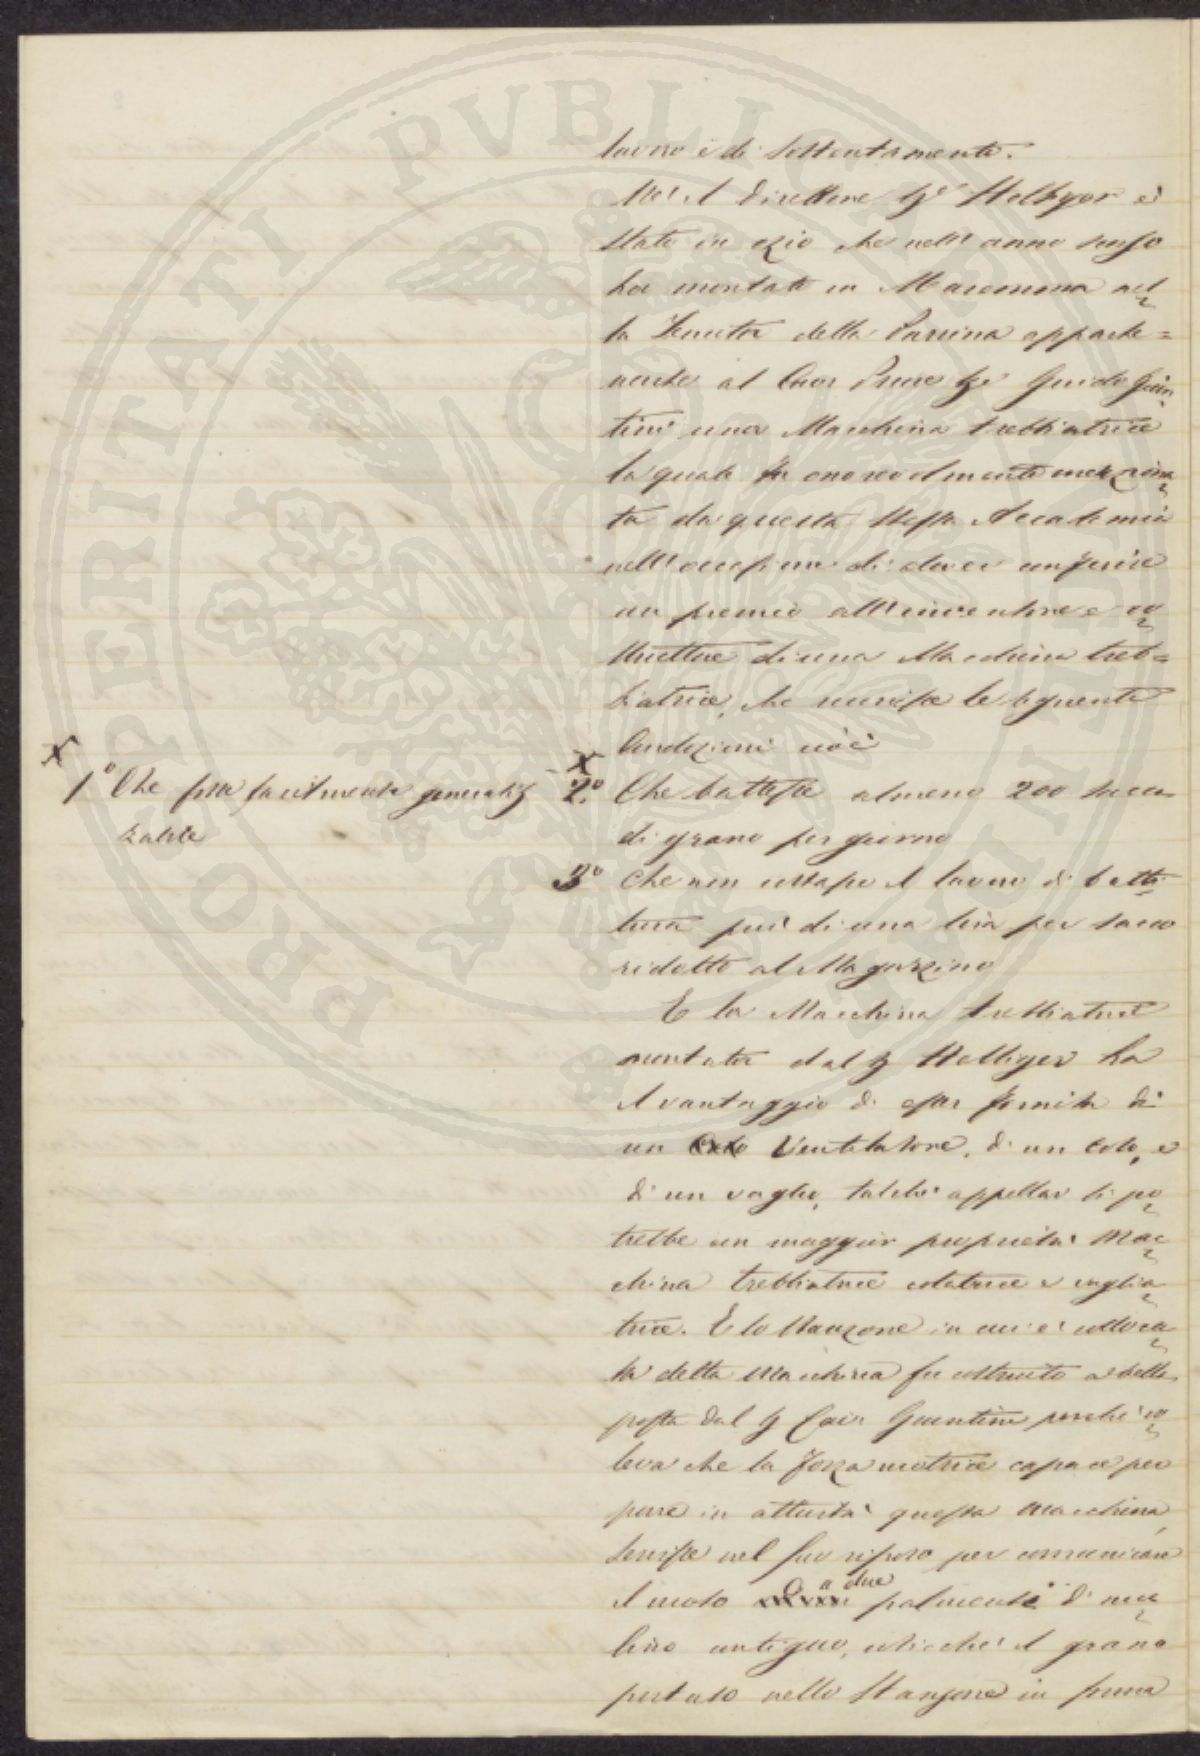 lavoro e di sostentamento.
Nè il Direttore Sr Stolhger è
stato in ozio che nell'anno scorso
ha montato in Maremma nel
la Tenuta della Parrina apparte=
nente al Cav Priore Sr Guido Guin
tini una Macchina trebbiatrice
la quale fu onorevolmente menziona
ta da questa stessa Accademia
nell'occasione di dover conferire
un premio all'inventore e co
struttore di una Macchina treb=
biatrice, che riunisse le seguenti
Condizioni cioè
X 1º Che fosse facilmente generaliz
zabile
X 2.º Che battesse almeno 200 sacca
di grano per giorno
3º Che non costasse il lavoro di batti
tura più di una lira per sacco
ridotto al Magazzino
E la Macchina trebbiatrice
montata dal S Stolhger ha
il vantaggio di esser fornita di
un Colo Ventilatore, di un Colo, e
di un vaglio, talchè appellar si po
trebbe con maggior proprietà Mac
china trebbiatrice colatrice e vaglia
trice. E lo Stanzone in cui è colloca
ta detta Macchina fu costruito a bella
posta dal S Cav Guintini perchè vo
leva che la forza motrice capace per
porre in attività questa Macchina,
servisse nel suo riposo per comunicare
il moto a due palmenti di mu
lino contiguo, cosicchè il grano
portato nello Stanzone in prima
PROSPERITATI PVBLICAE